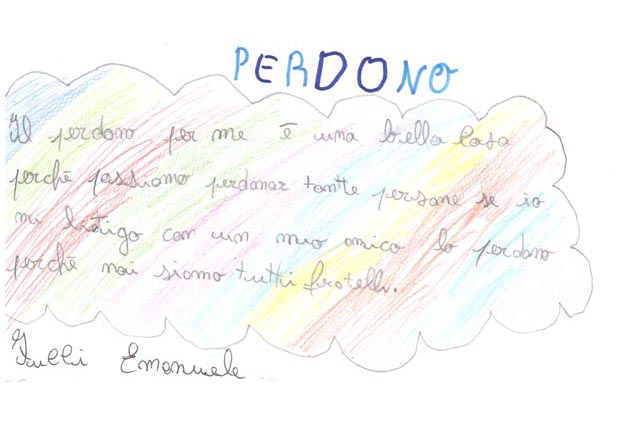 PERDONO
Il perdono per me è una bella cosa
perchè possiamo perdonar tantte persone se io
mi litigo con un mio amico lo perdono
perchè noi siamo tutti fratelli.
Emanuele